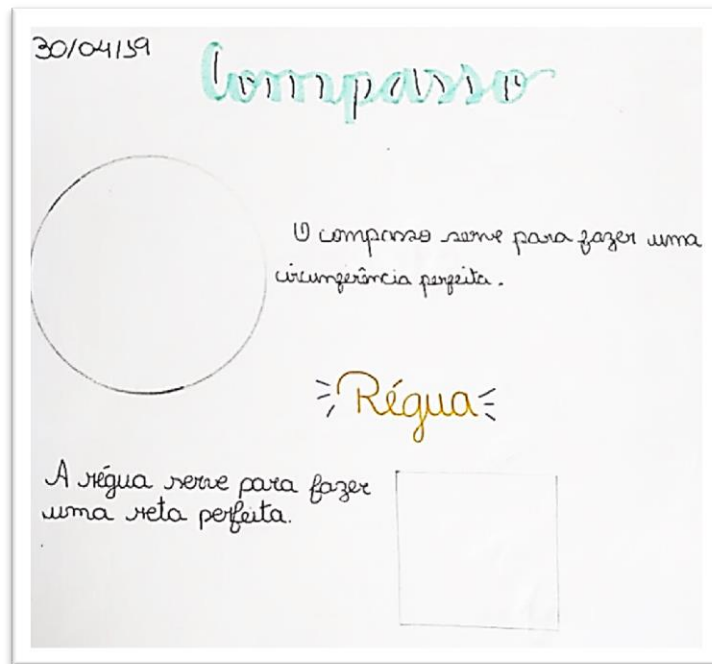 30/04/19
Compasso
O compasso serve para fazer uma
circunferência perfeita.
Régua
A régua serve para fazer
uma reta perfeita.